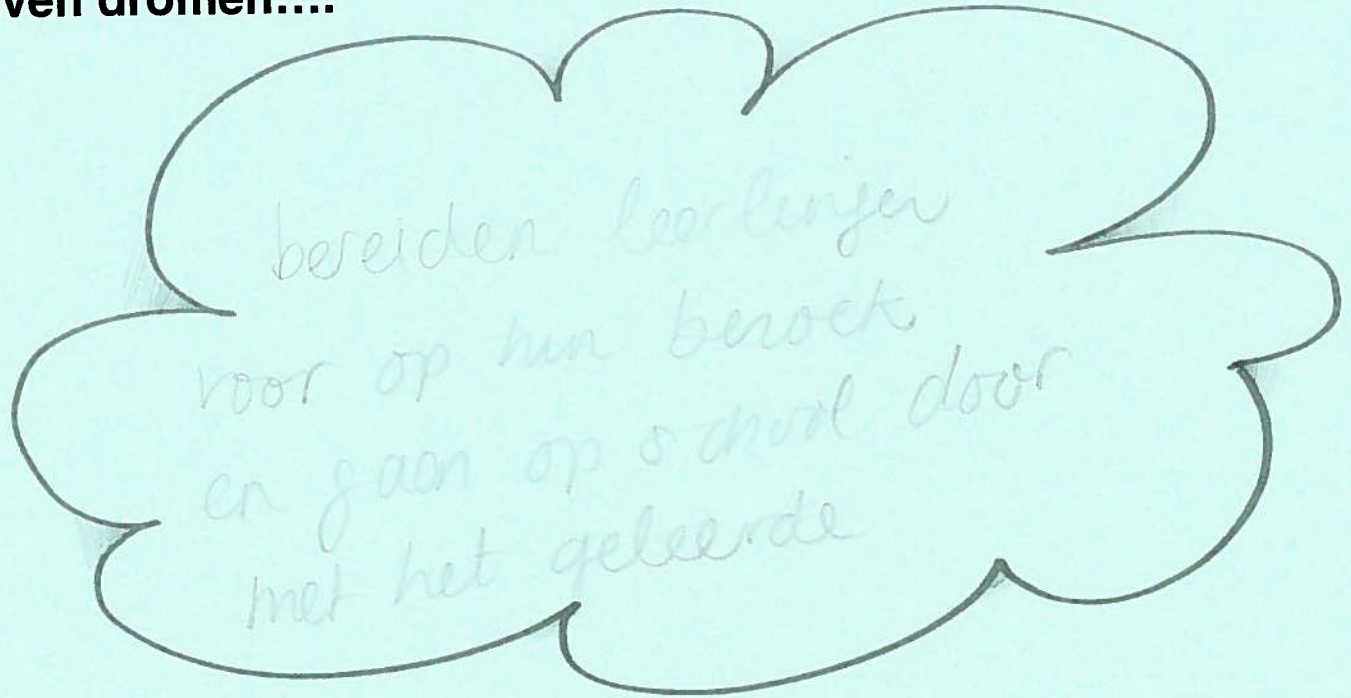 ven dromen....
bereiden leerlingen
voor op hun bezoek
en gaan op school door
met het geleerde